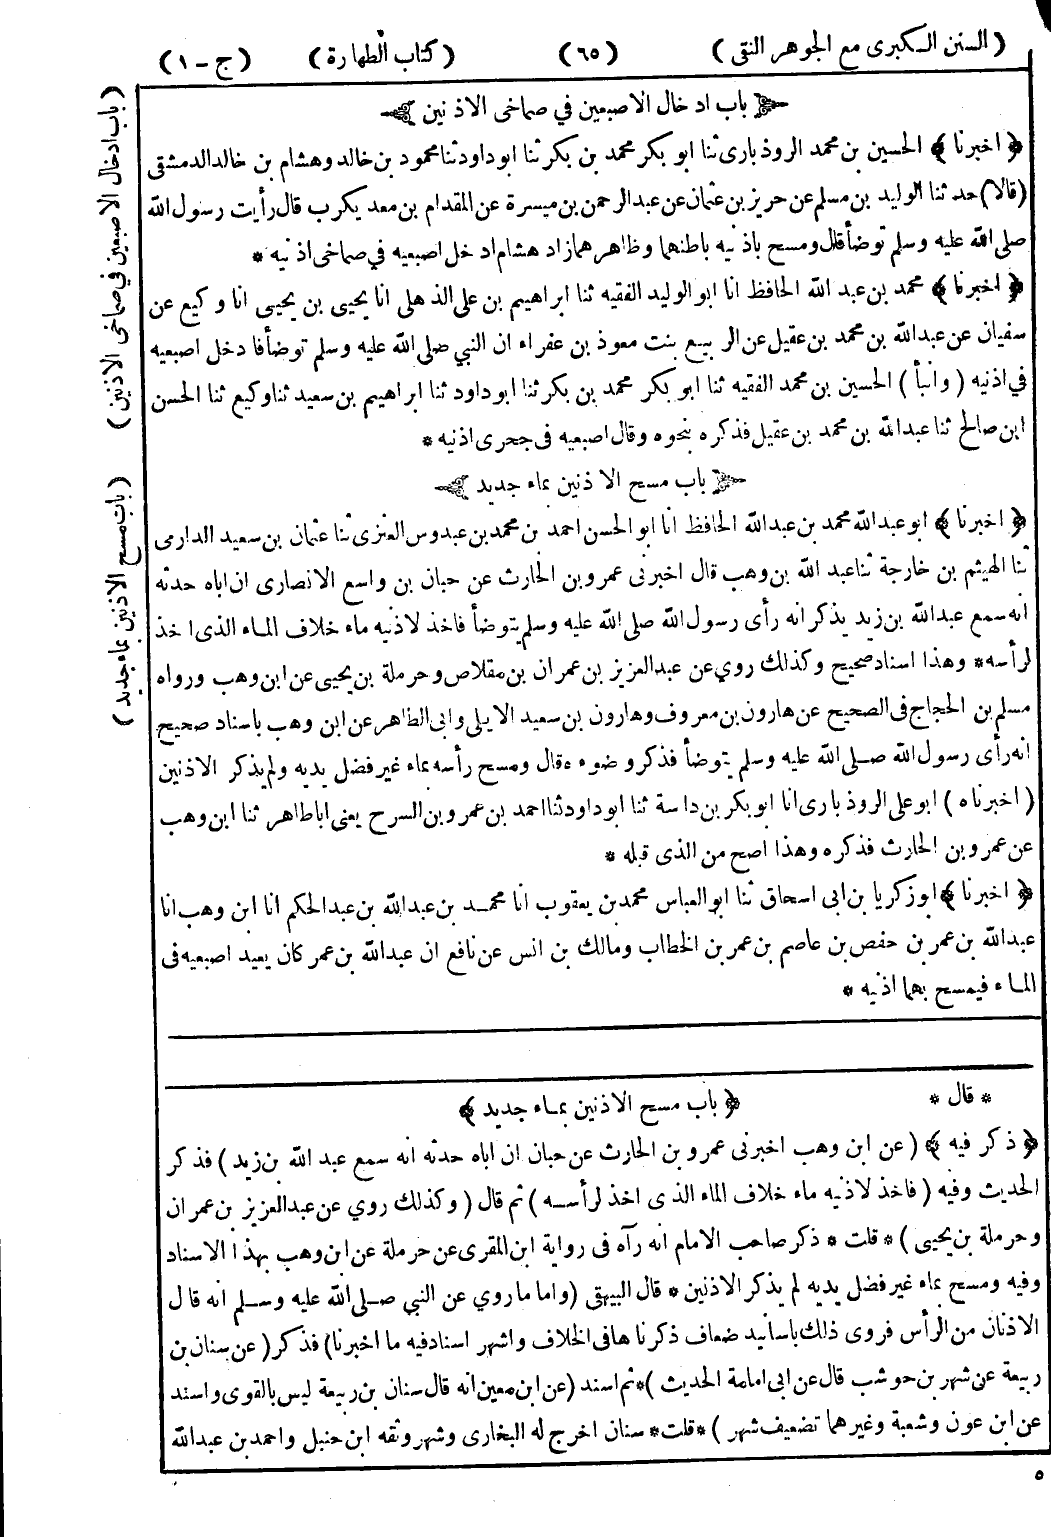 (السنن الكبرى مع الجوهر النقى) (٦٥) (كتاب الطهارة) (ج - ١)
باب ادخال الاصبعين في صماخى الاذنين
﴿ اخبرنا ﴾ الحسين بن محمد الروذبارى ثنا ابو بكر محمد بن بكر ثنا ابو داود ثنا محمود بن خالد وهشام بن خالد الدمشقى
(قالا) حدثنا الوليد بن مسلم عن حريز بن عثمان عن عبد الرحمن بن ميسرة عن المقدام بن معد يكرب قال رأيت رسول الله
صلى الله عليه وسلم توضأ قال ومسح باذنيه باطنهما وظاهرهما زاد هشام ادخل اصبعيه في صماخى اذنيه *
﴿ اخبرنا ﴾ محمد بن عبد الله الحافظ انا ابو الوليد الفقيه ثنا ابراهيم بن على الذهلى انا يحيى بن يحيى انا وكيع عن
سفيان عن عبد الله بن محمد بن عقيل عن الربيع بنت معوذ بن عفراء ان النبي صلى الله عليه وسلم توضأ فادخل اصبعيه
في اذنيه ( وانبأ ) الحسين بن محمد الفقيه ثنا ابو بكر محمد بن بكر ثنا ابو داود ثنا ابراهيم بن سعيد ثنا وكيع ثنا الحسن
ابن صالح ثنا عبد الله بن محمد بن عقيل فذكره بنحوه وقال اصبعيه في جحرى اذنيه *
باب مسح الاذنين بماء جديد
﴿ اخبرنا ﴾ ابو عبد الله محمد بن عبد الله الحافظ انا ابو الحسن احمد بن محمد بن عبدوس العنزى ثنا عثمان بن سعيد الدارمى
ثنا الهيثم بن خارجة ثنا عبد الله بن وهب قال اخبرنى عمرو بن الحارث عن حبان بن واسع الانصارى ان اباه حدثه
انه سمع عبد الله بن زيد يذكر انه رأى رسول الله صلى الله عليه وسلم يتوضأ فاخذ لاذنيه ماء خلاف الماء الذى اخذ
لرأسه * وهذا اسناد صحيح وكذلك روي عن عبد العزيز بن عمران بن مقلاص وحرملة بن يحيى عن ابن وهب ورواه
مسلم بن الحجاج فى الصحيح عن هارون بن معروف وهارون بن سعيد الايلى وابى الطاهر عن ابن وهب باسناد صحيح
انه رأى رسول الله صلى الله عليه وسلم يتوضأ فذكر وضوءه قال ومسح رأسه بماء غير فضل يديه ولم يذكر الاذنين
( اخبرناه ) ابو على الروذبارى انا ابو بكر بن داسة ثنا ابو داود ثنا احمد بن عمرو بن السرح يعنى ابا طاهر ثنا ابن وهب
عن عمرو بن الحارث فذكره وهذا اصح من الذى قبله *
﴿ اخبرنا ﴾ ابو زكريا بن ابى اسحاق ثنا ابو العباس محمد بن يعقوب انا محمد بن عبد الله بن عبد الحكم انا ابن وهب انا
عبد الله بن عمر بن حفص بن عاصم بن عمر بن الخطاب ومالك بن انس عن نافع ان عبد الله بن عمر كان يعيد اصبعيه فى
الماء فيمسح بهما اذنيه *
* قال * ﴿ باب مسح الاذنين بماء جديد ﴾
﴿ ذكر فيه ﴾ ( عن ابن وهب اخبرنى عمرو بن الحارث عن حبان ان اباه حدثه انه سمع عبد الله بن زيد ) فذكر
الحديث وفيه ( فاخذ لاذنيه ماء خلاف الماء الذى اخذ لرأسه ) ثم قال ( وكذلك روي عن عبد العزيز بن عمران
وحرملة بن يحيى ) * قلت * ذكر صاحب الامام انه رآه فى رواية ابن المقرى عن حرملة عن ابن وهب بهذا الاسناد
وفيه ومسح بماء غير فضل يديه لم يذكر الاذنين * قال البيهقى (واما ما روي عن النبي صلى الله عليه وسلم انه قال
الاذنان من الرأس فروى ذلك باسانيد ضعاف ذكرناها فى الخلاف واشهر اسناد فيه ما اخبرنا) فذكر ( عن سنان بن
ربيعة عن شهر بن حوشب قال عن ابى امامة الحديث ) * ثم اسند (عن ابن معين انه قال سنان بن ربيعة ليس بالقوى واسند
عن ابن عون وشعبة وغيرهما تضعيف شهر ) * قلت * سنان اخرج له البخارى وشهر وثقه ابن حنبل واحمد بن عبد الله
٥
(باب ادخال الاصبعين في صماخى الاذنين)
(باب مسح الاذنين بماء جديد)